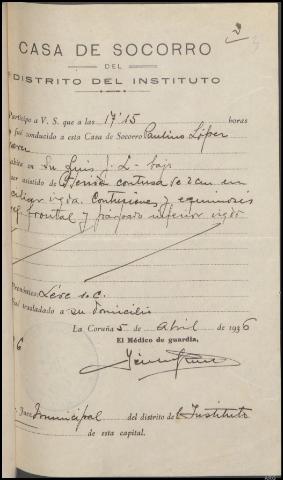 CASA DE SOCORRO
DEL
DISTRITO DEL INSTITUTO
Participo a V. S. que a las 17'15 horas
fué conducido a esta Casa de Socorro Paulino López
en San Luis 2 - bajo
ser asistido de herida contusa de 2 cm en
Contusiones y equimosis
frontal y párpado inferior
Leve s. c.
fué trasladado a su domicilio
La Coruña 5 de Abril de 1936
El Médico de guardia,
Juez municipal del distrito del Instituto
de esta capital.